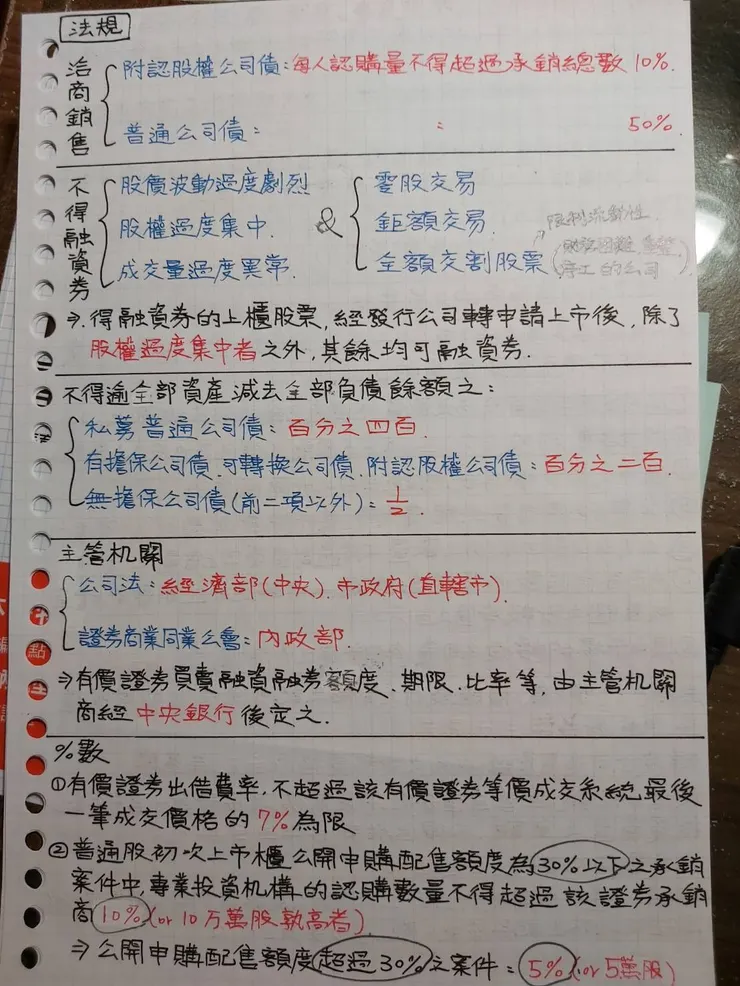 法規
洽商銷售
附認股權公司債:每人認購量不得超過承銷總數10%.
普通公司債: : 50%.
不得融資券
股價波動過度劇烈
股權過度集中.
成交量過度異常.
&
零股交易
鉅額交易.
全額交割股票
限制流動性.
(財務困難、
停工的公司)
⇒. 得融資券的上櫃股票,經發行公司轉申請上市後,除了
股權過度集中者之外,其餘均可融資券.
不得逾全部資產減去全部負債餘額之:
私募普通公司債:百分之四百.
有擔保公司債.可轉換公司債.附認股權公司債:百分之二百.
無擔保公司債(前二項以外):1/2.
主管机關
公司法:經濟部(中央).市政府(直轄市).
證券商業同業公會:內政部.
⇒有價證券買賣融資融券額度、期限.比率等,由主管机關
商經中央銀行後定之.
%數
①有價證券出借費率.不超過該有價證券等價成交系統最後
一筆成交價格的7%為限
②普通股初次上市櫃公開申購配售額度為30%以下之承銷
案件中,專業投資机構的認購數量不得超過該證券承銷
商10%(or 10万萬股孰高者)
⇒公開申購配售額度超過30%之案件=5%(or 5萬股)
點